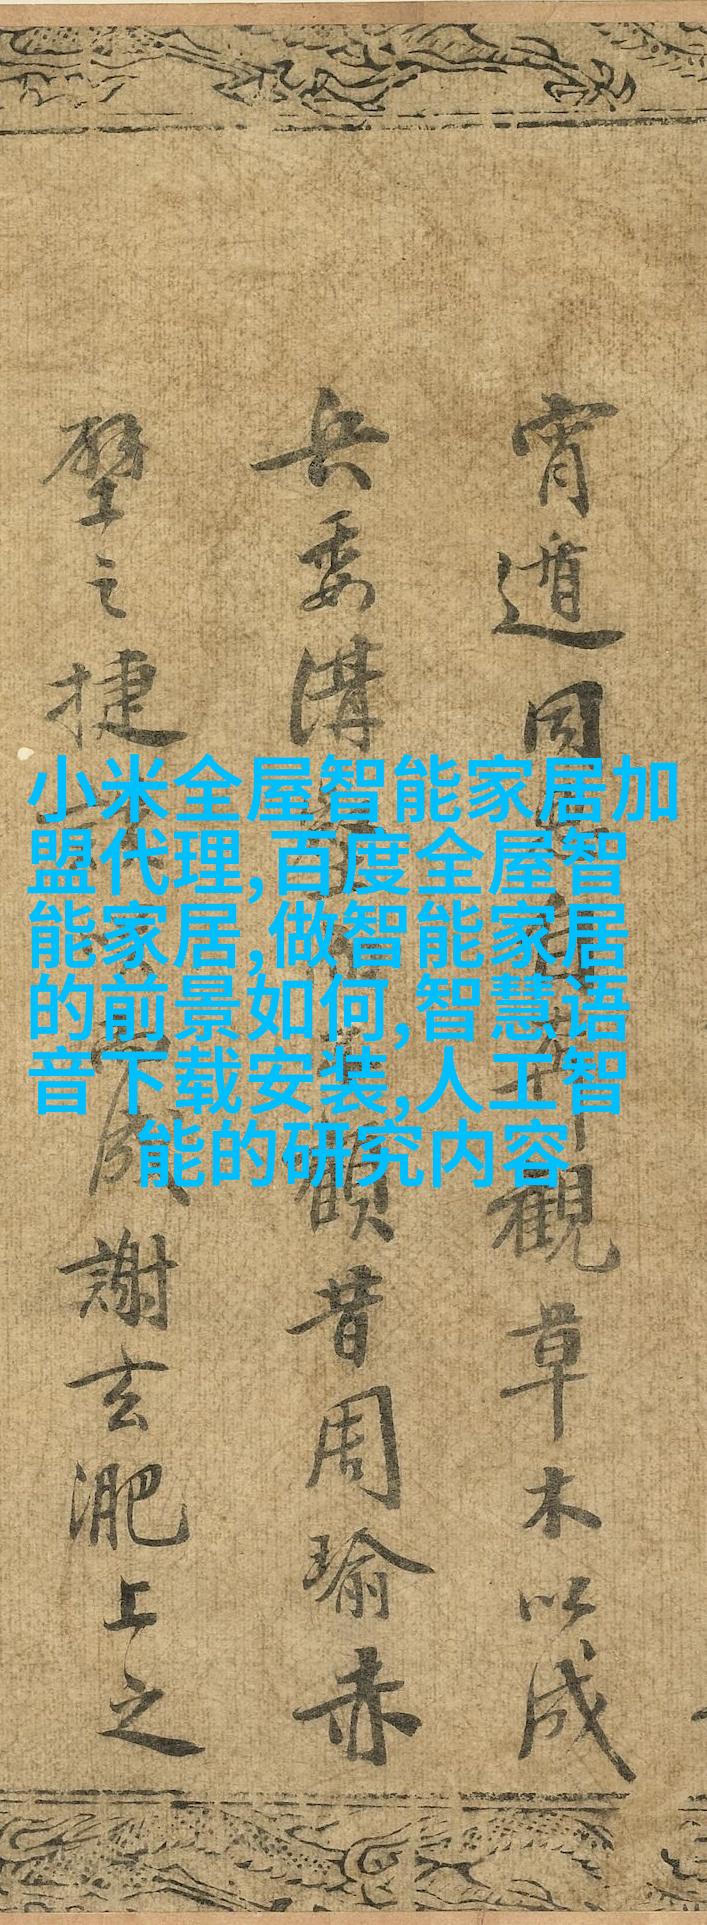 小米全屋智能家居加
盟代理,百度全屋智
能家居,做智能家居
的前景如何,智慧语
音下载安装,人工智
能的研究内容
宵遁 觀草木以成
兵委溝 顧昔周瑜赤
壁之捷 成謝玄淝上之